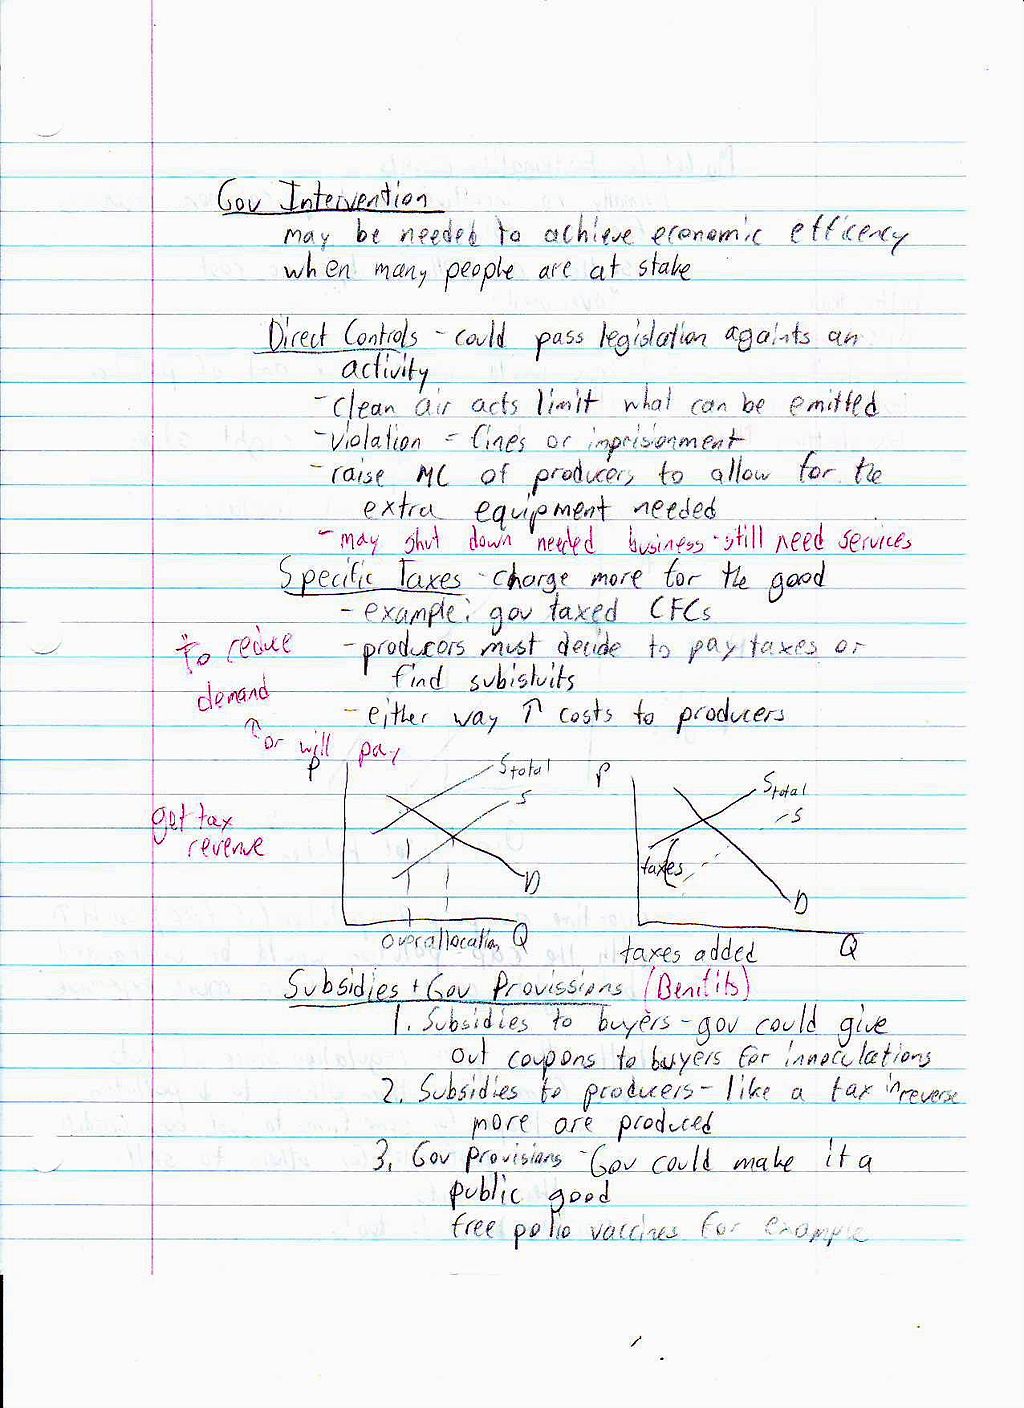 Gov Intervention
may be needed to achieve economic efficency
when many people are at stake
Direct Controls - could pass legislation againts an
activity
- clean air acts limit what can be emitted
- violation = fines or imprisionment
- raise MC of producers to allow for the
extra equipment needed
- may shut down needed business - still need services
Specific Taxes - charge more for the good
- example: gov taxed CFCs
- producors must decide to pay taxes or
find subistuits
- either way ↑ costs to producers
To reduce
demand
↑ or will pay
get tax
revenue
P
Stotal
S
D
overallocation Q
P
Stotal
S
taxes
D
taxes added Q
Subsidies + Gov Provissions (Benifits)
1. Subsidies to buyers - gov could give
out coupons to buyers for innoculations
2. Subsidies to producers - like a tax in reverse
more are produced
3. Gov provisions - Gov could make it a
public good
free polio vaccines for example